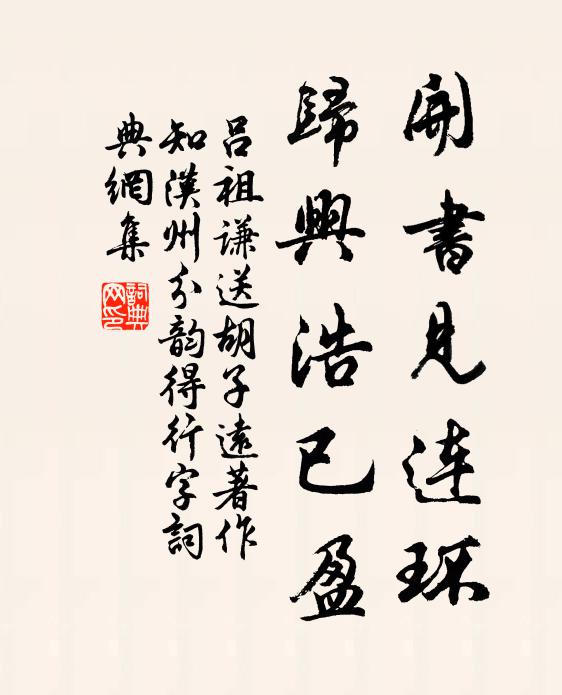 開書見连环
歸興浩已盈
吕祖谦送胡子遠著作
知漢州分韵得行字詞
典網集
詞典网印